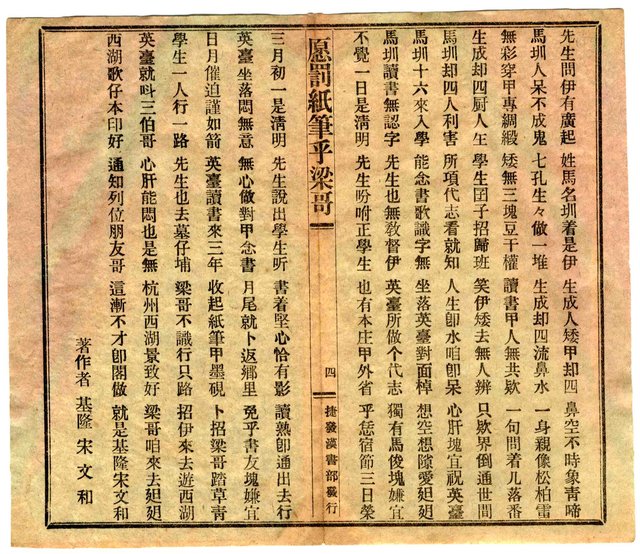 先生問伊有廣起 姓馬名圳着是伊 生成人矮甲却四 鼻空不時象青啼
馬圳人呆不成鬼 七孔生々做一堆 生成却四流鼻水 一身親像松柏雷
無彩穿甲專綢緞 矮無三塊豆干權 讀書甲人無共欵 一句問着几落番
生成却四厨人㞷 學生囝子招歸班 笑伊矮去無人辨 只欵界倒通世間
馬圳却四人利害 所項代志看就知 人生卽水咱卽呆 心肝塊宜祝英臺
馬圳十六來入學 能念書歌識字無 坐落英臺對面棹 想空想隙愛𨑨迌
馬圳讀書無認字 先生也無敎督伊 英臺所做个代志 獨有馬俊塊嫌宜
不覺一日是清明 先生吩咐正學生 也有本庄甲外省 乎恁宿節三日榮
愿罰紙筆乎梁哥
四
捷發漢書部發行
三月初一是清明 先生說出學生听 書着堅心恰有影 讀熟卽通出去行
英臺坐落悶無意 無心做對甲念書 月尾就卜返鄕里 免乎書友塊嫌宜
日月催迫謹如箭 英臺讀書來三年 收起紙筆甲墨硯 卜招梁哥踏草靑
學生一人行一路 先生也去墓仔埔 梁哥不識行只路 招伊來去遊西湖
英臺就呌三伯哥 心肝能悶也是無 杭州西湖景致好 梁哥咱來去𨑨迌
西湖歌仔本印好 通知列位朋友哥 這漸不才卽閣做 就是基隆宋文和
著作者 基隆 宋文和